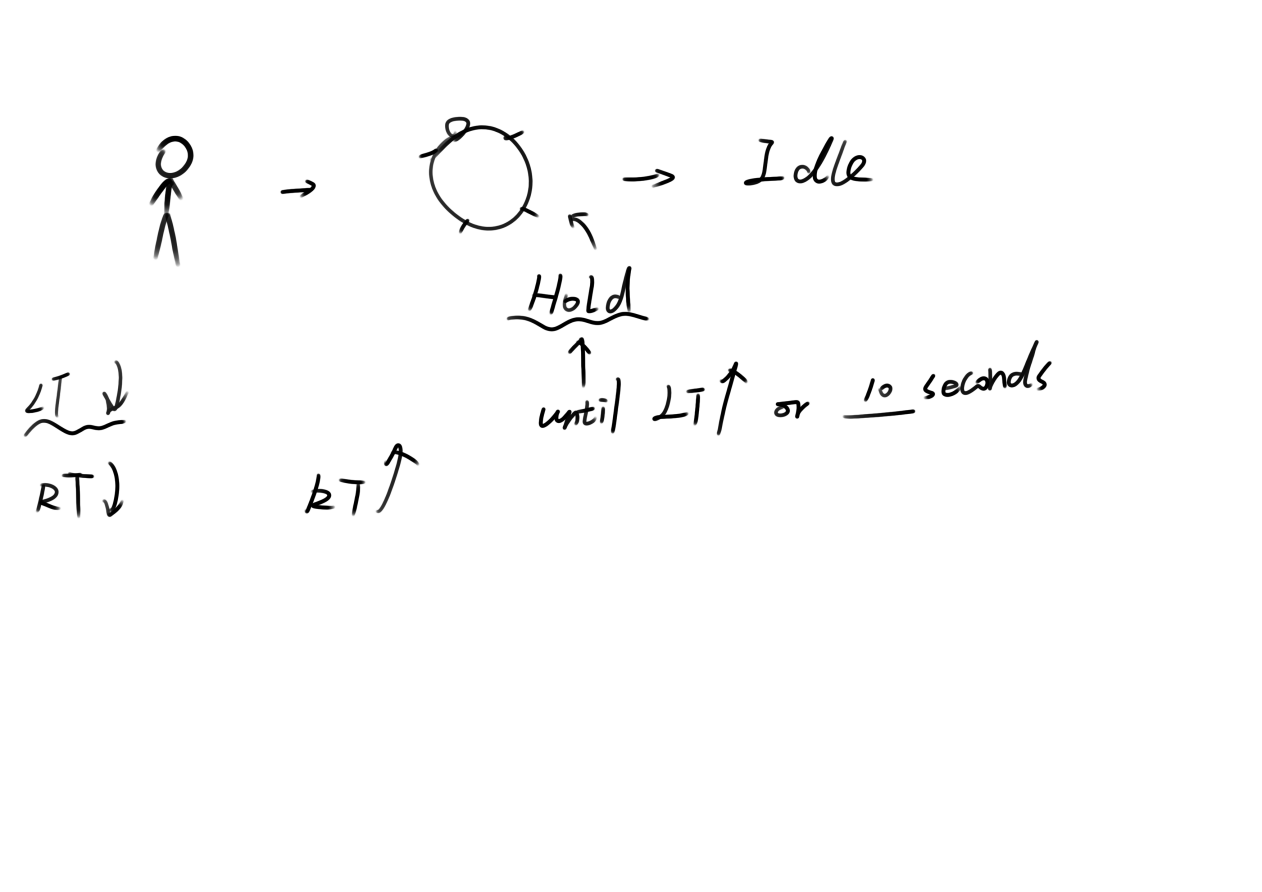 → → Idle
Hold
LT ↓ until LT ↑ or 10 seconds
RT ↓ RT ↑